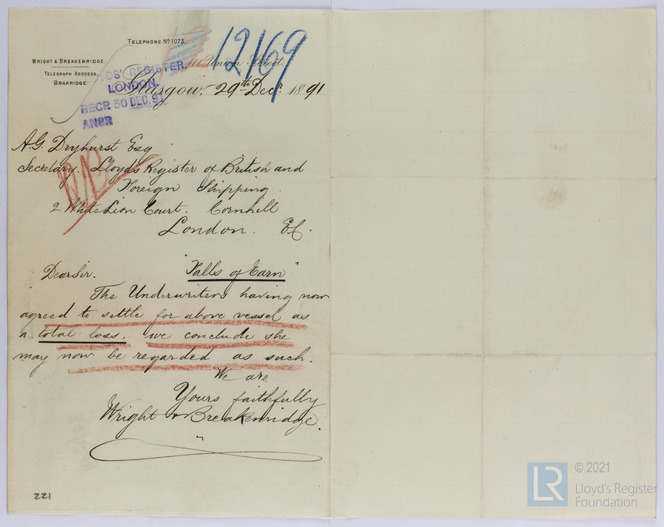 TELEPHONE Nº 1073.
WRIGHT & BREAKENRIDGE
TELEGRAPH ADDRESS,
BRAKRIDGE.
12169
Union Street,
REGISTER,
LONDON.
RECR 30 DEC. 91
ANSR
Glasgow, 29th Decr 1891
A.G. Dryhurst Esq
Secretary. Lloyd's Register of British and
Foreign Shipping
2 White Lion Court. Cornhill
London. E.C.
Dear Sir.
"Falls of Earn"
The Underwriters having now
agreed to settle for above vessel as
a total loss, we conclude she
may now be regarded as such.
We are
Yours faithfully
Wright & Breakenridge.
221
LR
© 2021
Lloyd's Register
Foundation